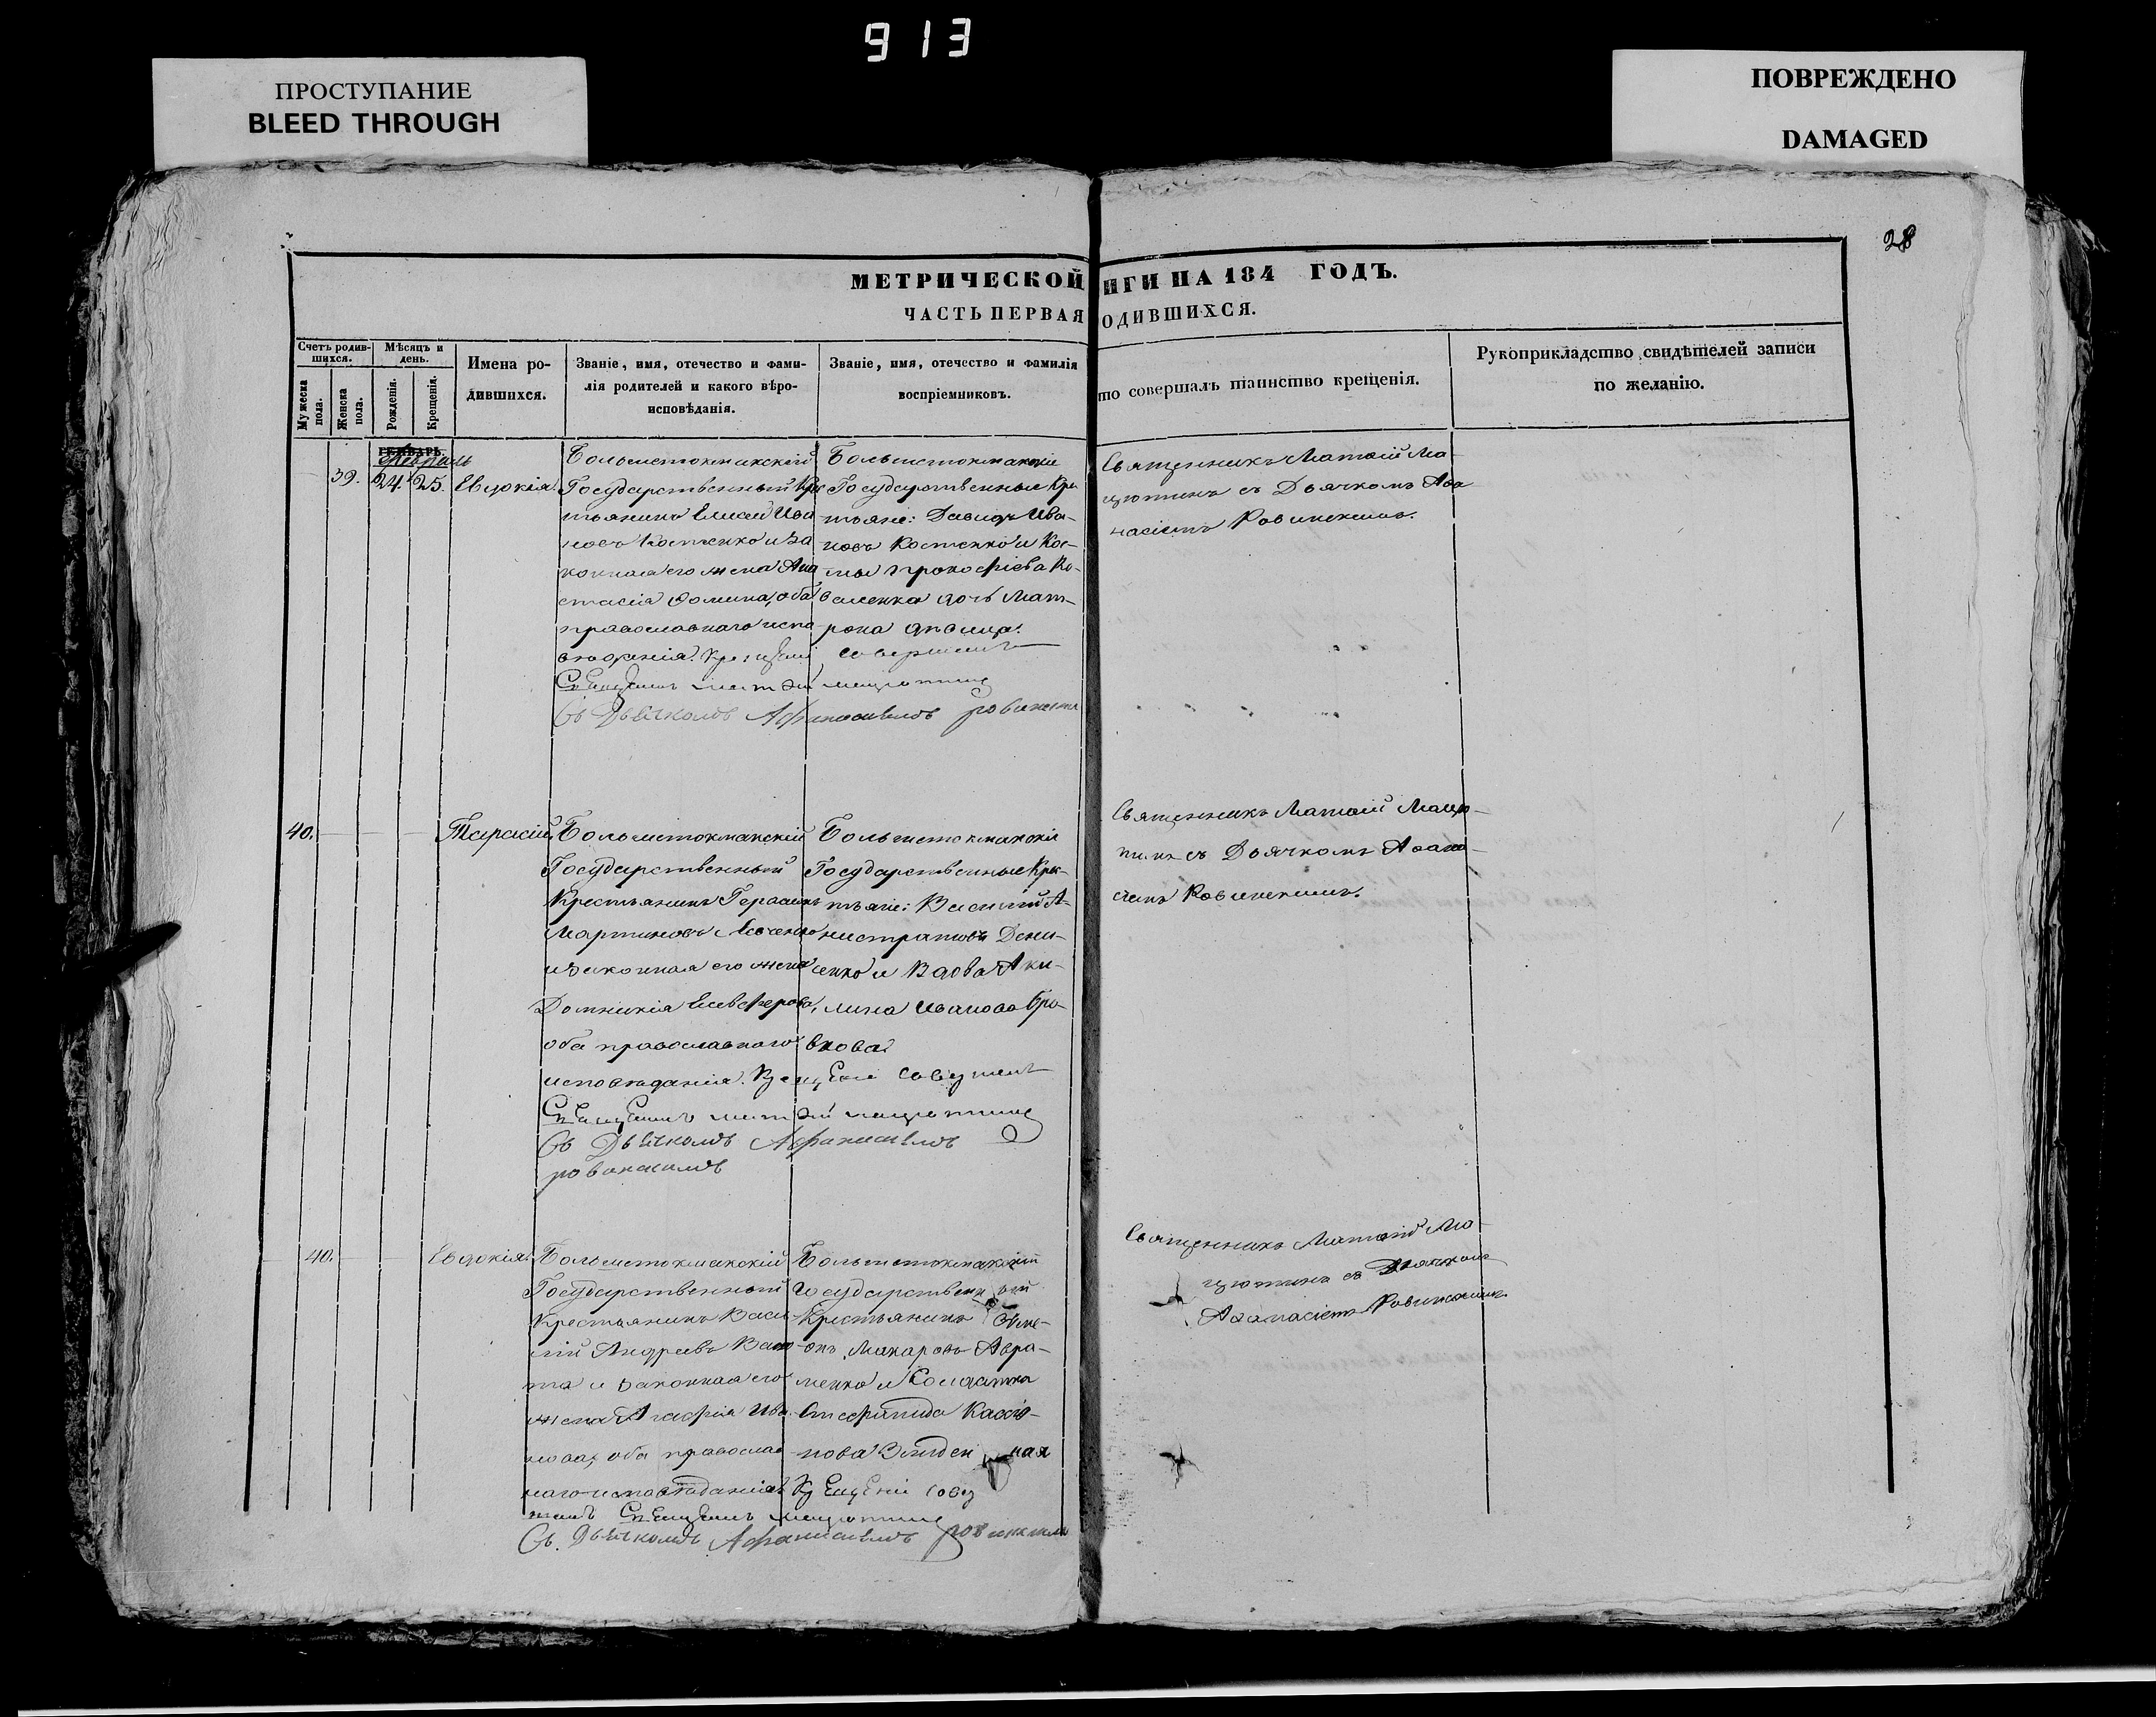 913
ПРОСТУПАНИЕ
BLEED THROUGH
ПОВРЕЖДЕНО
DAMAGED
28
МЕТРИЧЕСКОЙ ИГИ НА 184 ГОДЪ.
ЧАСТЬ ПЕРВАЯ ОДИВШИХСЯ.
Счетъ родившихся.
Мужеска пола.
Женска пола.
Мѣсяцъ и день.
Рожденія.
Крещенія.
Имена родившихся.
Званіе, имя, отечество и фамилія родителей и какого вѣроисповѣданія.
Званіе, имя, отечество и фамилія воспріемниковъ.
то совершалъ таинство крещенія.
Рукоприкладство свидѣтелей записи по желанію.
Февраль
39. 24. 25. Евдокія.
Большетокмакскій
Государственный Кре
стьянинъ Елисей Ива
новъ Костенко и за
конная его жена Ана
стасія Фомина, оба
православнаго испо
вѣданія. Крещеніе совершилъ
Священникъ Матѳій Мацютинъ
Съ Дьячкомъ Афанасиемъ
Большетокмакскіе
Государственные Кре
стьяне: Давидъ Ива-
новъ Костенко и Кос-
мы Прокофіева Ко-
валенка дочь Мат-
рона дѣвица.
Священникъ Матѳій Ма-
цютинъ съ Дьячкомъ Аѳа
насіемъ Ровинскимъ.
40. Тарасій.
Большетокмакскій
Государственный
Крестьянинъ Герасимъ
Мартиновъ
и законная его жена
Домникія Елевферова,
оба православнаго
исповѣданія. Крещеніе совершилъ
Священникъ Матѳій Мацютинъ
Съ Дьячкомъ Афанасиемъ
Ровинскимъ
Большетокмакскіе
Государственные Кре-
стьяне: Василій А-
нистратовъ Дени-
сенко и Вдова Аки-
лина Иванова Бро-
вкова.
Священникъ Матѳій Мацю-
тинъ съ Дьячкомъ Аѳана-
сіемъ Ровинскимъ.
40. Евдокія.
Большетокмакскій
Государственный
Крестьянинъ Васи-
лій Андреевъ
и законная его
жена Агафія Ива-
нова, оба православ
наго исповѣданія. Крещеніе совер
шилъ Священникъ Мацютинъ
Съ Дьячкомъ Афанасиемъ Ровинскимъ
Большетокмакскій
Государственный
Крестьянинъ Симе-
онъ Макаровъ Авра-
менко и Солдатка
Стефанида
нова
Священникъ Матѳій Ма-
цютинъ съ Дьячкомъ
Аѳанасіемъ Ровинскимъ.